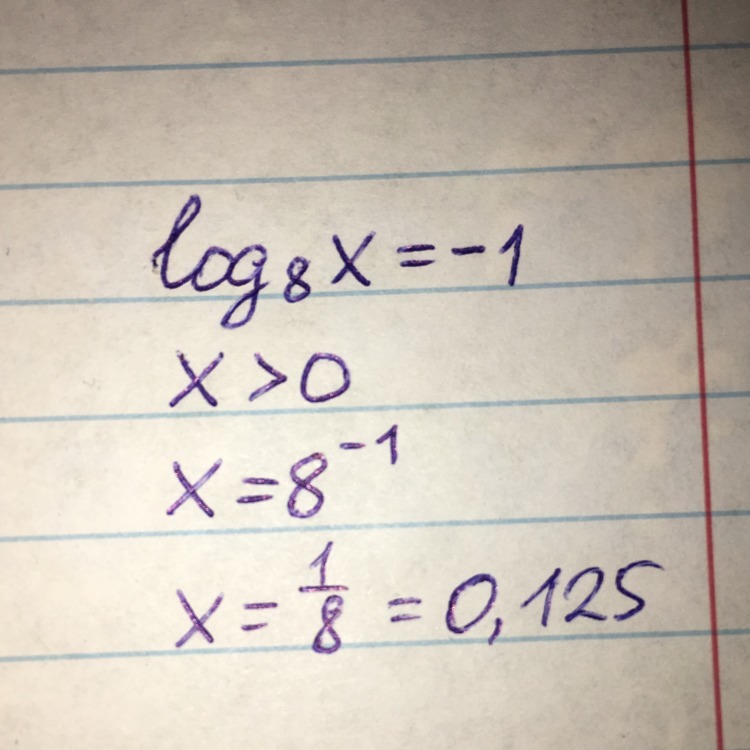 log₈x = -1
x > 0
x = 8⁻¹
x = 1/8 = 0,125